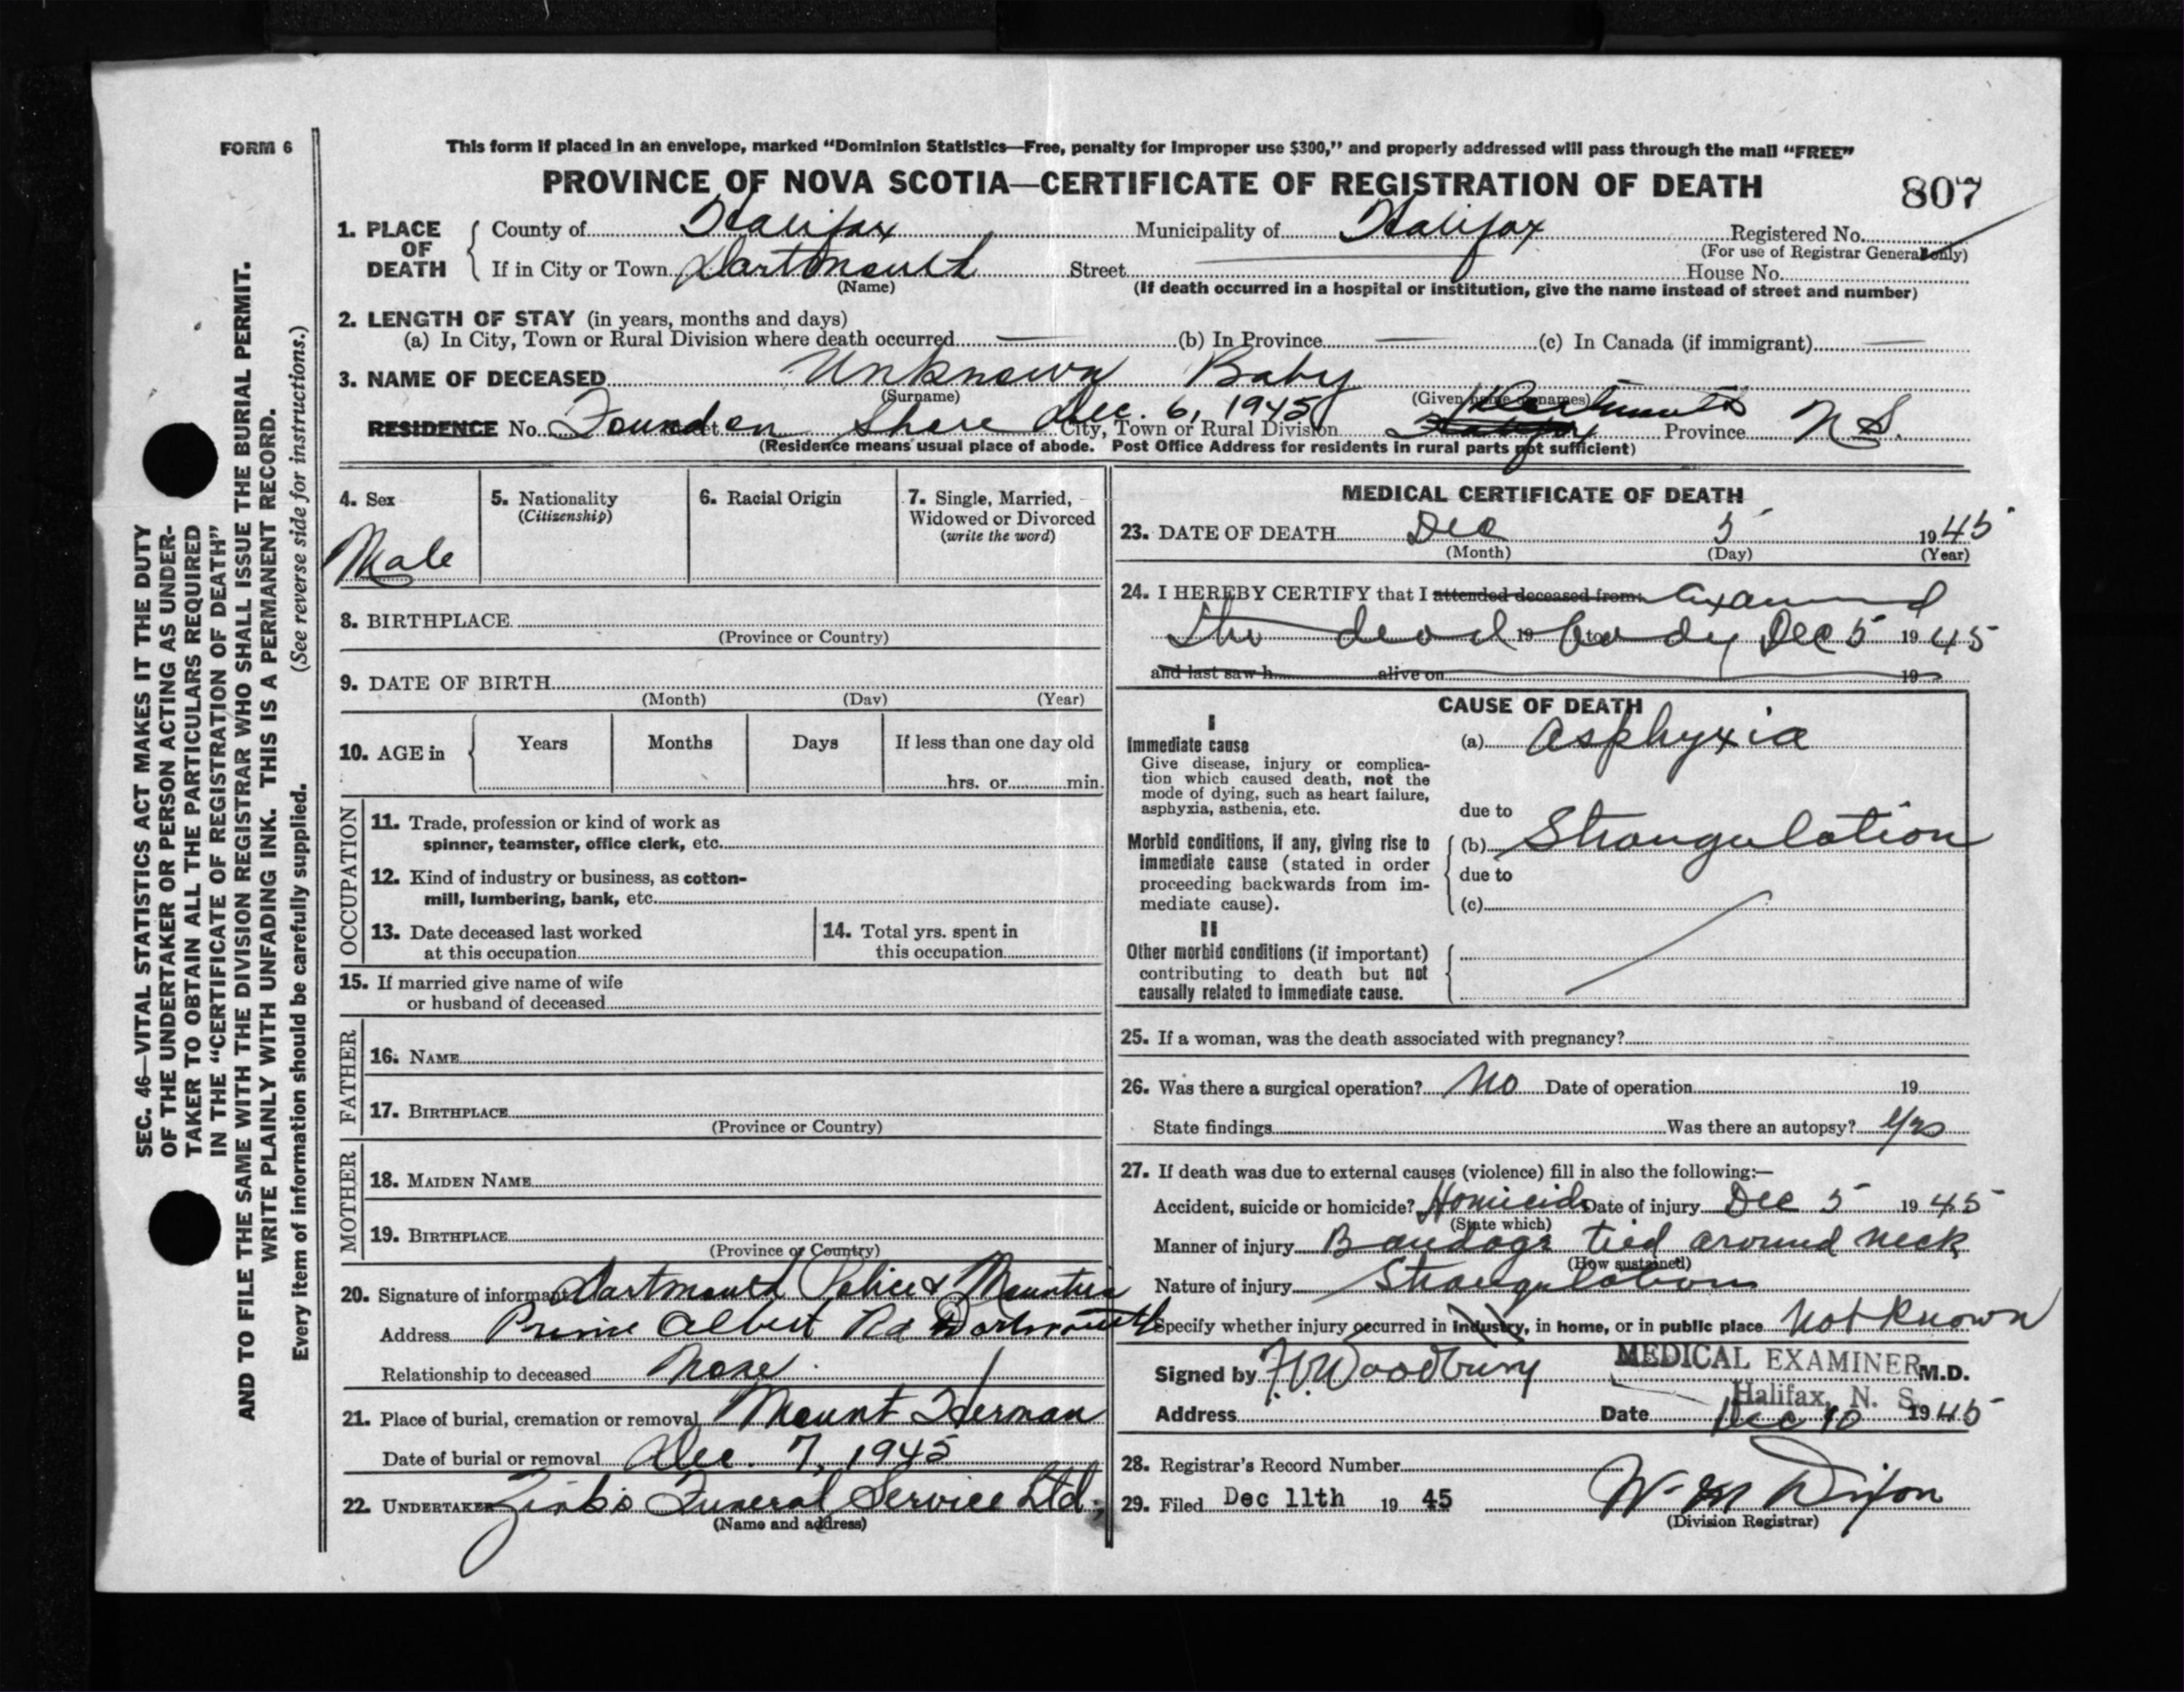 FORM 6
This form if placed in an envelope, marked "Dominion Statistics—Free, penalty for improper use $300," and properly addressed will pass through the mail "FREE"
PROVINCE OF NOVA SCOTIA—CERTIFICATE OF REGISTRATION OF DEATH
807
1. PLACE OF DEATH
County of Halifax Municipality of Halifax Registered No.
(For use of Registrar General only)
If in City or Town Dartmouth Street House No.
(Name) (If death occurred in a hospital or institution, give the name instead of street and number)
2. LENGTH OF STAY (in years, months and days)
(a) In City, Town or Rural Division where death occurred — (b) In Province — (c) In Canada (if immigrant) —
3. NAME OF DECEASED Unknown Baby
(Surname) (Given name or names)
RESIDENCE No. Street Found on Shore Dec. 6, 1945 City, Town or Rural Division Halifax Dartmouth Province N S.
(Residence means usual place of abode. Post Office Address for residents in rural parts not sufficient)
4. Sex
Male
5. Nationality
(Citizenship)
6. Racial Origin
7. Single, Married,
Widowed or Divorced
(write the word)
8. BIRTHPLACE
(Province or Country)
9. DATE OF BIRTH
(Month) (Day) (Year)
10. AGE in Years Months Days If less than one day old
hrs. or min.
OCCUPATION
11. Trade, profession or kind of work as
spinner, teamster, office clerk, etc.
12. Kind of industry or business, as cotton-
mill, lumbering, bank, etc.
13. Date deceased last worked
at this occupation
14. Total yrs. spent in
this occupation
15. If married give name of wife
or husband of deceased
FATHER
16. NAME
17. BIRTHPLACE
(Province or Country)
MOTHER
18. MAIDEN NAME
19. BIRTHPLACE
(Province or Country)
20. Signature of informant Dartmouth Police & Mounties
Address Prince Albert Rd Dartmouth
Relationship to deceased None
21. Place of burial, cremation or removal Mount Herman
Date of burial or removal Dec. 7, 1945
22. UNDERTAKER Funeral Service Ltd.
(Name and address)
MEDICAL CERTIFICATE OF DEATH
23. DATE OF DEATH Dec 5 1945
(Month) (Day) (Year)
24. I HEREBY CERTIFY that I attended deceased from: Examined
the dead 19 to body Dec 5 19 45
and last saw h alive on 19
CAUSE OF DEATH
I
Immediate cause
Give disease, injury or complica-
tion which caused death, not the
mode of dying, such as heart failure,
asphyxia, asthenia, etc.
(a) Asphyxia
due to
Morbid conditions, if any, giving rise to
immediate cause (stated in order
proceeding backwards from im-
mediate cause).
(b) Strangulation
due to
(c)
II
Other morbid conditions (if important)
contributing to death but not
causally related to immediate cause.
25. If a woman, was the death associated with pregnancy?
26. Was there a surgical operation? No Date of operation 19
State findings Was there an autopsy? Yes
27. If death was due to external causes (violence) fill in also the following:—
Accident, suicide or homicide? Homicide Date of injury Dec 5 19 45
(State which)
Manner of injury Bandage tied around neck
(How sustained)
Nature of injury Strangulation
Specify whether injury occurred in industry, in home, or in public place Not Known
Signed by Woodbury MEDICAL EXAMINER M.D.
Halifax, N. S.
Address Date Dec 10 1945
28. Registrar's Record Number
29. Filed Dec 11th 19 45 Dixon
(Division Registrar)
SEC. 46—VITAL STATISTICS ACT MAKES IT THE DUTY
OF THE UNDERTAKER OR PERSON ACTING AS UNDER-
TAKER TO OBTAIN ALL THE PARTICULARS REQUIRED
IN THE "CERTIFICATE OF REGISTRATION OF DEATH"
AND TO FILE THE SAME WITH THE DIVISION REGISTRAR WHO SHALL ISSUE THE BURIAL PERMIT.
WRITE PLAINLY WITH UNFADING INK. THIS IS A PERMANENT RECORD.
Every item of information should be carefully supplied. (See reverse side for instructions.)